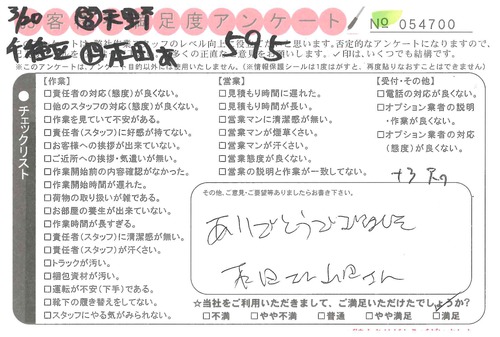 お客 足度アンケート
3/20 天野
千種区
595
No 054700
(※このアンケートは、アンケート目的以外には使用いたしません。)(※情報保護シールは1度はがすと、再度貼りなおすことはできません)
チェックリスト
【作業】
□責任者の対応(態度)が良くない。
□他のスタッフの対応(態度)が良くない。
□作業を見ていて不安がある。
□責任者(スタッフ)に好感が持てない。
□お客様への挨拶が出来ていない。
□ご近所への挨拶・気遣いが無い。
□作業開始前の内容確認がなかった。
□作業開始時間が遅れた。
□荷物の取り扱いが雑である。
□お部屋の養生が出来ていない。
□作業時間が長すぎる。
□責任者(スタッフ)に清潔感が無い。
□責任者(スタッフ)が汗くさい。
□トラックが汚い。
□梱包資材が汚い。
□運転が不安(下手)である。
□靴下の履き替えをしてない。
□スタッフにやる気がみられない。
【営業】
□見積もり時間に遅れた。
□見積もり時間が長い。
□営業マンに清潔感が無い。
□営業マンが煙草くさい。
□営業マンが汗くさい。
□営業態度が良くない。
□営業の説明と作業が一致してない。
【受付・その他】
□電話の対応が良くない。
□オプション業者の説明
・作業が良くない。
□オプション業者の対応
(態度)が良くない。
その他、ご意見・ご要望等ありましたらお書き下さい。
ありがとうございました
☆当社をご利用いただきまして、ご満足いただけたでしょうか?
□不満 □やや不満 □普通 □やや満足 □満足